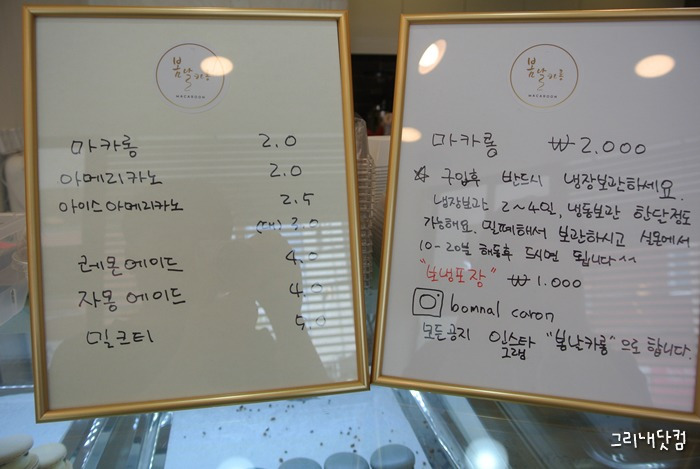 봄날카롱
MACAROON
마카롱 2.0
아메리카노 2.0
아이스아메리카노 2.5
(대) 3.0
레몬에이드 4.0
자몽에이드 4.0
밀크티 5.0
봄날카롱
MACAROON
마카롱 ₩2.000
☆ 구입후 반드시 냉장보관하세요.
냉장보관 2~4일, 냉동보관 한달정도
가능해요. 밀폐해서 보관하시고 실온에서
10-20분 해동후 드시면 됩니다^^
"보냉포장" ₩1.000
bomnal caron
모든공지 인스타그램 "봄날카롱"으로 합니다.
그리내닷컴